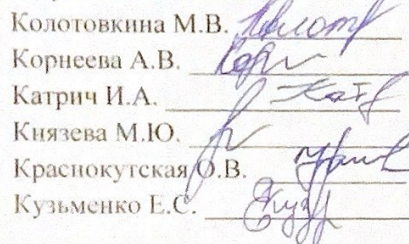 Колотовкина М.В.
Корнеева А.В.
Катрич И.А.
Князева М.Ю.
Краснокутская О.В.
Кузьменко Е.С.